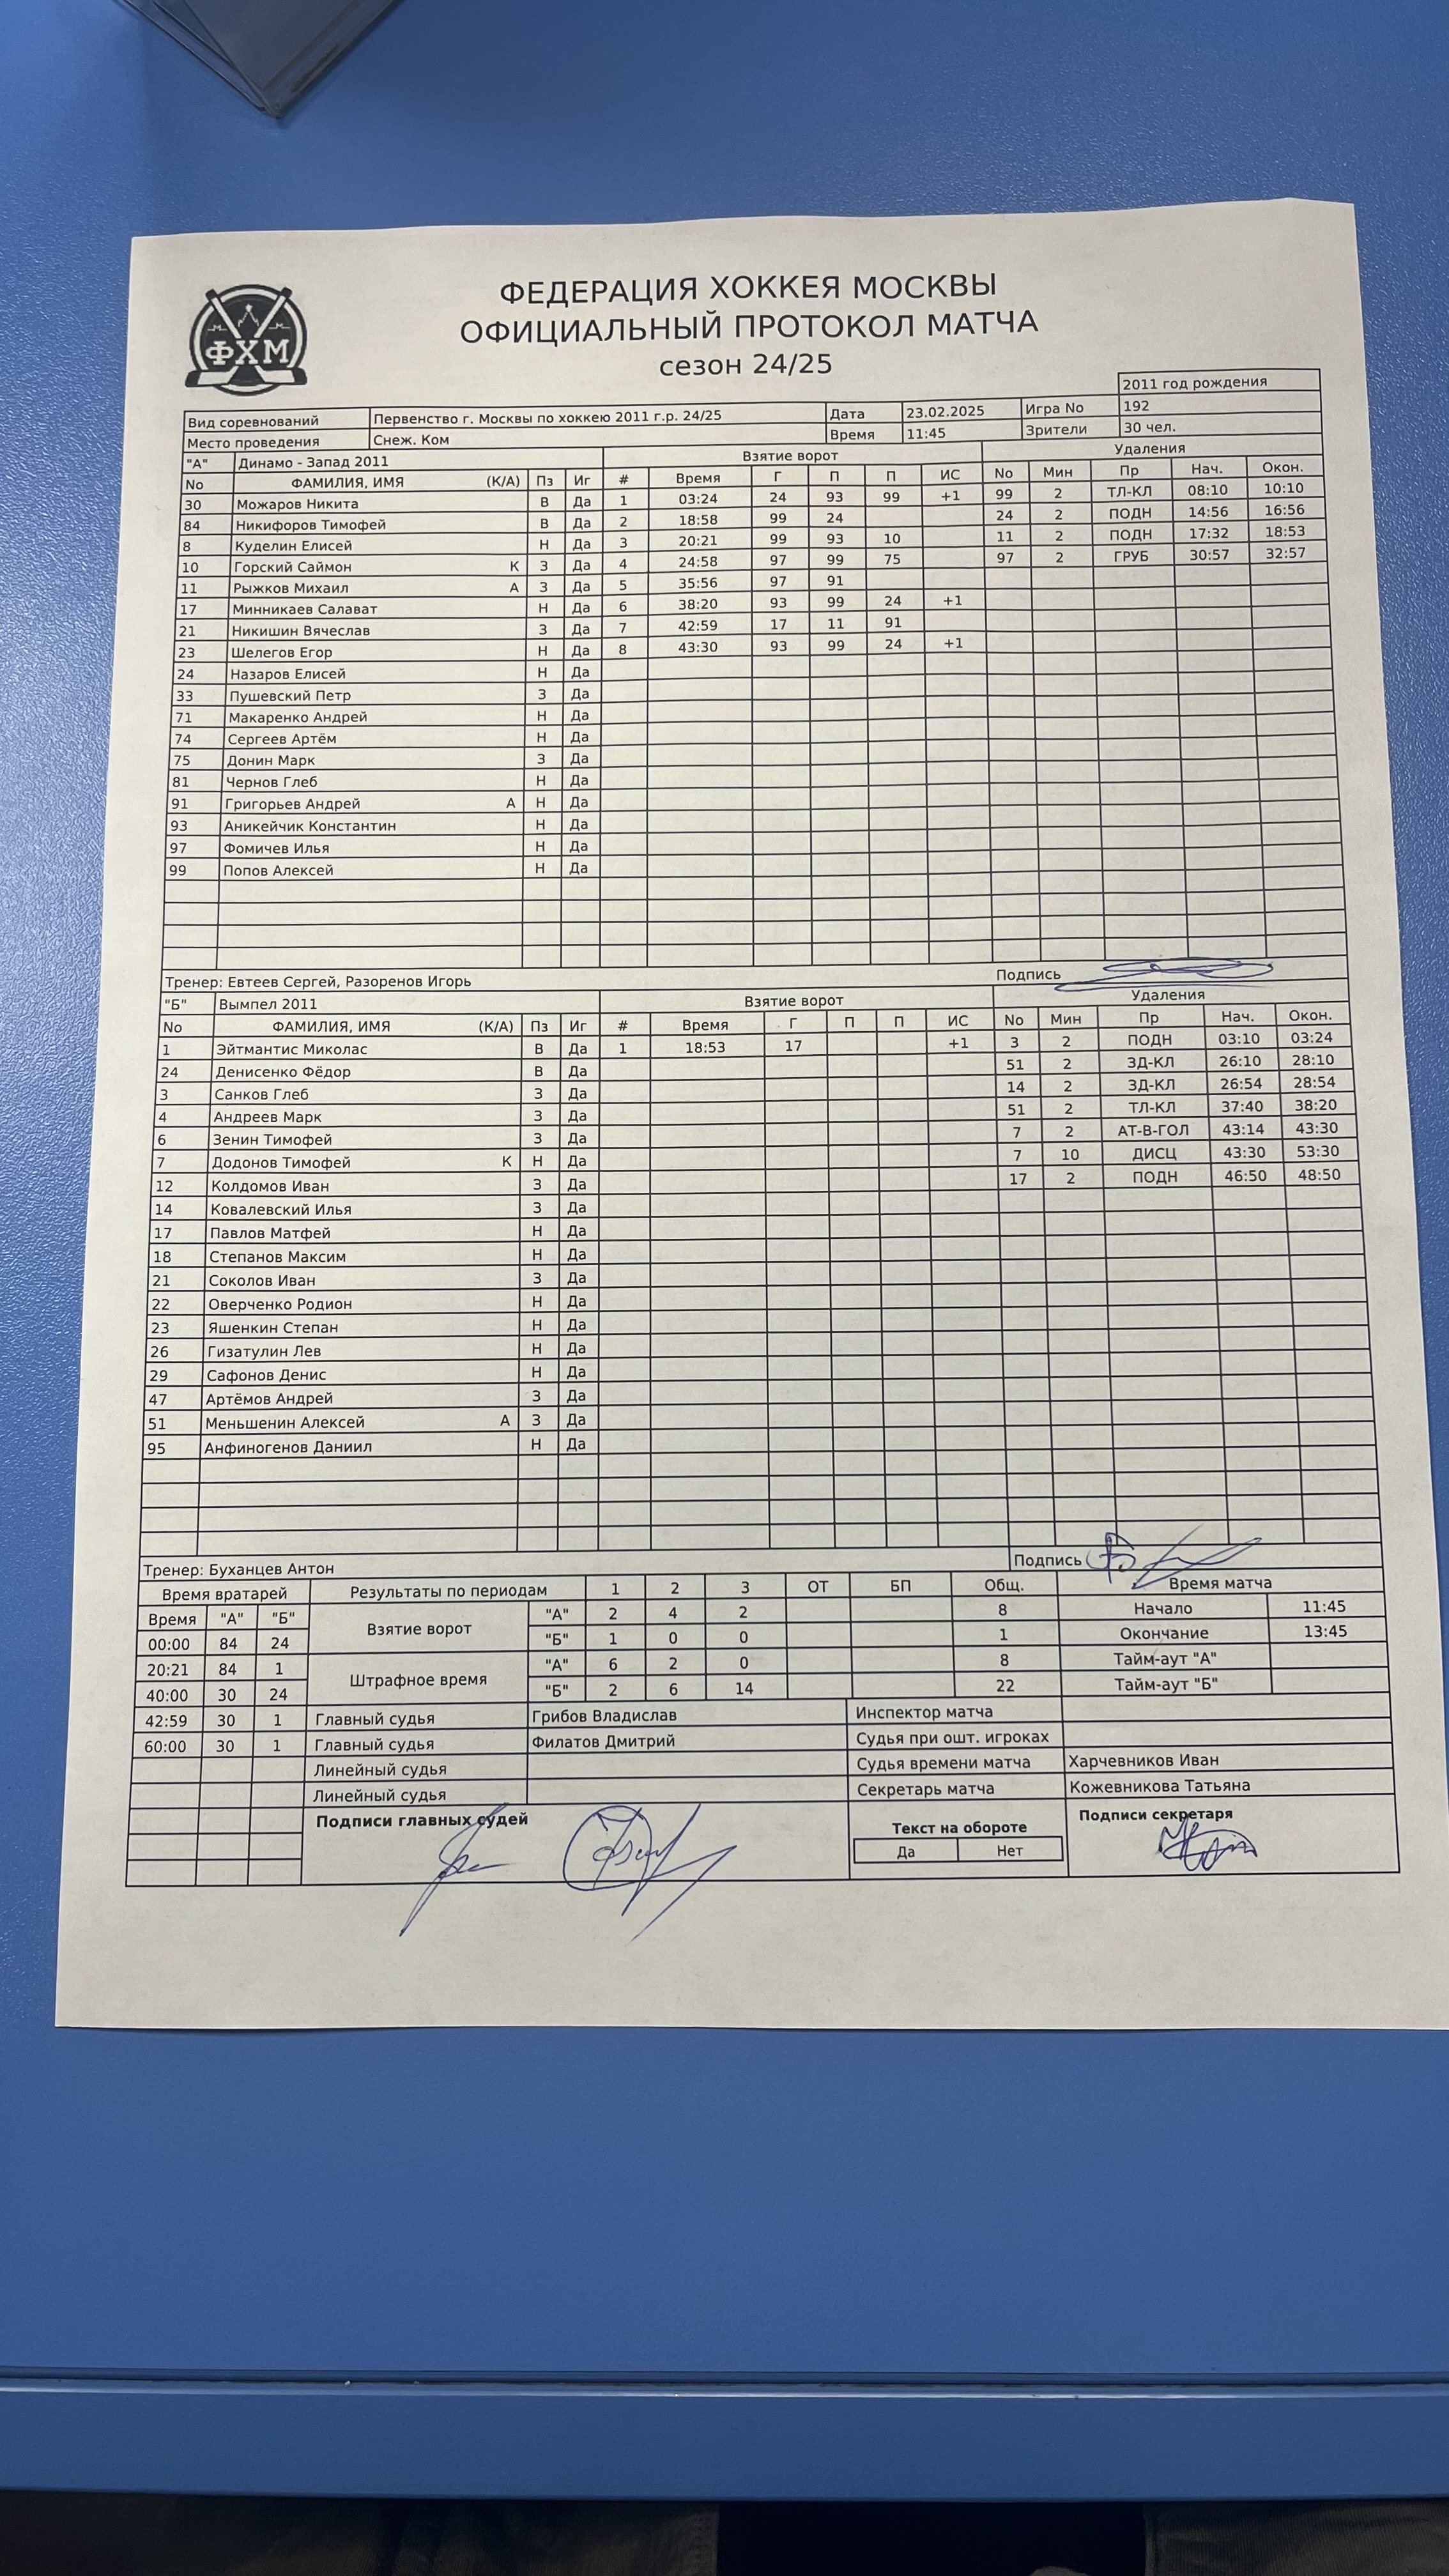 ФХМ
ФЕДЕРАЦИЯ ХОККЕЯ МОСКВЫ
ОФИЦИАЛЬНЫЙ ПРОТОКОЛ МАТЧА
сезон 24/25
2011 год рождения
Вид соревнований Первенство г. Москвы по хоккею 2011 г.р. 24/25 Дата 23.02.2025 Игра No 192
Место проведения Снеж. Ком Время 11:45 Зрители 30 чел.
"А" Динамо - Запад 2011 Взятие ворот Удаления
No ФАМИЛИЯ, ИМЯ (К/А) Пз Иг # Время Г П П ИС No Мин Пр Нач. Окон.
30 Можаров Никита В Да 1 03:24 24 93 99 +1 99 2 ТЛ-КЛ 08:10 10:10
84 Никифоров Тимофей В Да 2 18:58 99 24 24 2 ПОДН 14:56 16:56
8 Куделин Елисей Н Да 3 20:21 99 93 10 11 2 ПОДН 17:32 18:53
10 Горский Саймон К З Да 4 24:58 97 99 75 97 2 ГРУБ 30:57 32:57
11 Рыжков Михаил А З Да 5 35:56 97 91
17 Минникаев Салават Н Да 6 38:20 93 99 24 +1
21 Никишин Вячеслав З Да 7 42:59 17 11 91
23 Шелегов Егор Н Да 8 43:30 93 99 24 +1
24 Назаров Елисей Н Да
33 Пушевский Петр З Да
71 Макаренко Андрей Н Да
74 Сергеев Артём Н Да
75 Донин Марк З Да
81 Чернов Глеб Н Да
91 Григорьев Андрей А Н Да
93 Аникейчик Константин Н Да
97 Фомичев Илья Н Да
99 Попов Алексей Н Да
Тренер: Евтеев Сергей, Разоренов Игорь Подпись
"Б" Вымпел 2011 Взятие ворот Удаления
No ФАМИЛИЯ, ИМЯ (К/А) Пз Иг # Время Г П П ИС No Мин Пр Нач. Окон.
1 Эйтмантис Миколас В Да 1 18:53 17 +1 3 2 ПОДН 03:10 03:24
24 Денисенко Фёдор В Да 51 2 ЗД-КЛ 26:10 28:10
3 Санков Глеб З Да 14 2 ЗД-КЛ 26:54 28:54
4 Андреев Марк З Да 51 2 ТЛ-КЛ 37:40 38:20
6 Зенин Тимофей З Да 7 2 АТ-В-ГОЛ 43:14 43:30
7 Додонов Тимофей К Н Да 7 10 ДИСЦ 43:30 53:30
12 Колдомов Иван З Да 17 2 ПОДН 46:50 48:50
14 Ковалевский Илья З Да
17 Павлов Матфей Н Да
18 Степанов Максим Н Да
21 Соколов Иван З Да
22 Оверченко Родион Н Да
23 Яшенкин Степан Н Да
26 Гизатулин Лев Н Да
29 Сафонов Денис Н Да
47 Артёмов Андрей З Да
51 Меньшенин Алексей А З Да
95 Анфиногенов Даниил Н Да
Тренер: Буханцев Антон Подпись
Время вратарей Результаты по периодам 1 2 3 ОТ БП Общ. Время матча
Время "А" "Б" Взятие ворот "А" 2 4 2 8 Начало 11:45
00:00 84 24 "Б" 1 0 0 1 Окончание 13:45
20:21 84 1 Штрафное время "А" 6 2 0 8 Тайм-аут "А"
40:00 30 24 "Б" 2 6 14 22 Тайм-аут "Б"
42:59 30 1 Главный судья Грибов Владислав Инспектор матча
60:00 30 1 Главный судья Филатов Дмитрий Судья при ошт. игроках
Линейный судья Судья времени матча Харчевников Иван
Линейный судья Секретарь матча Кожевникова Татьяна
Подписи главных судей Текст на обороте Подписи секретаря
Да Нет